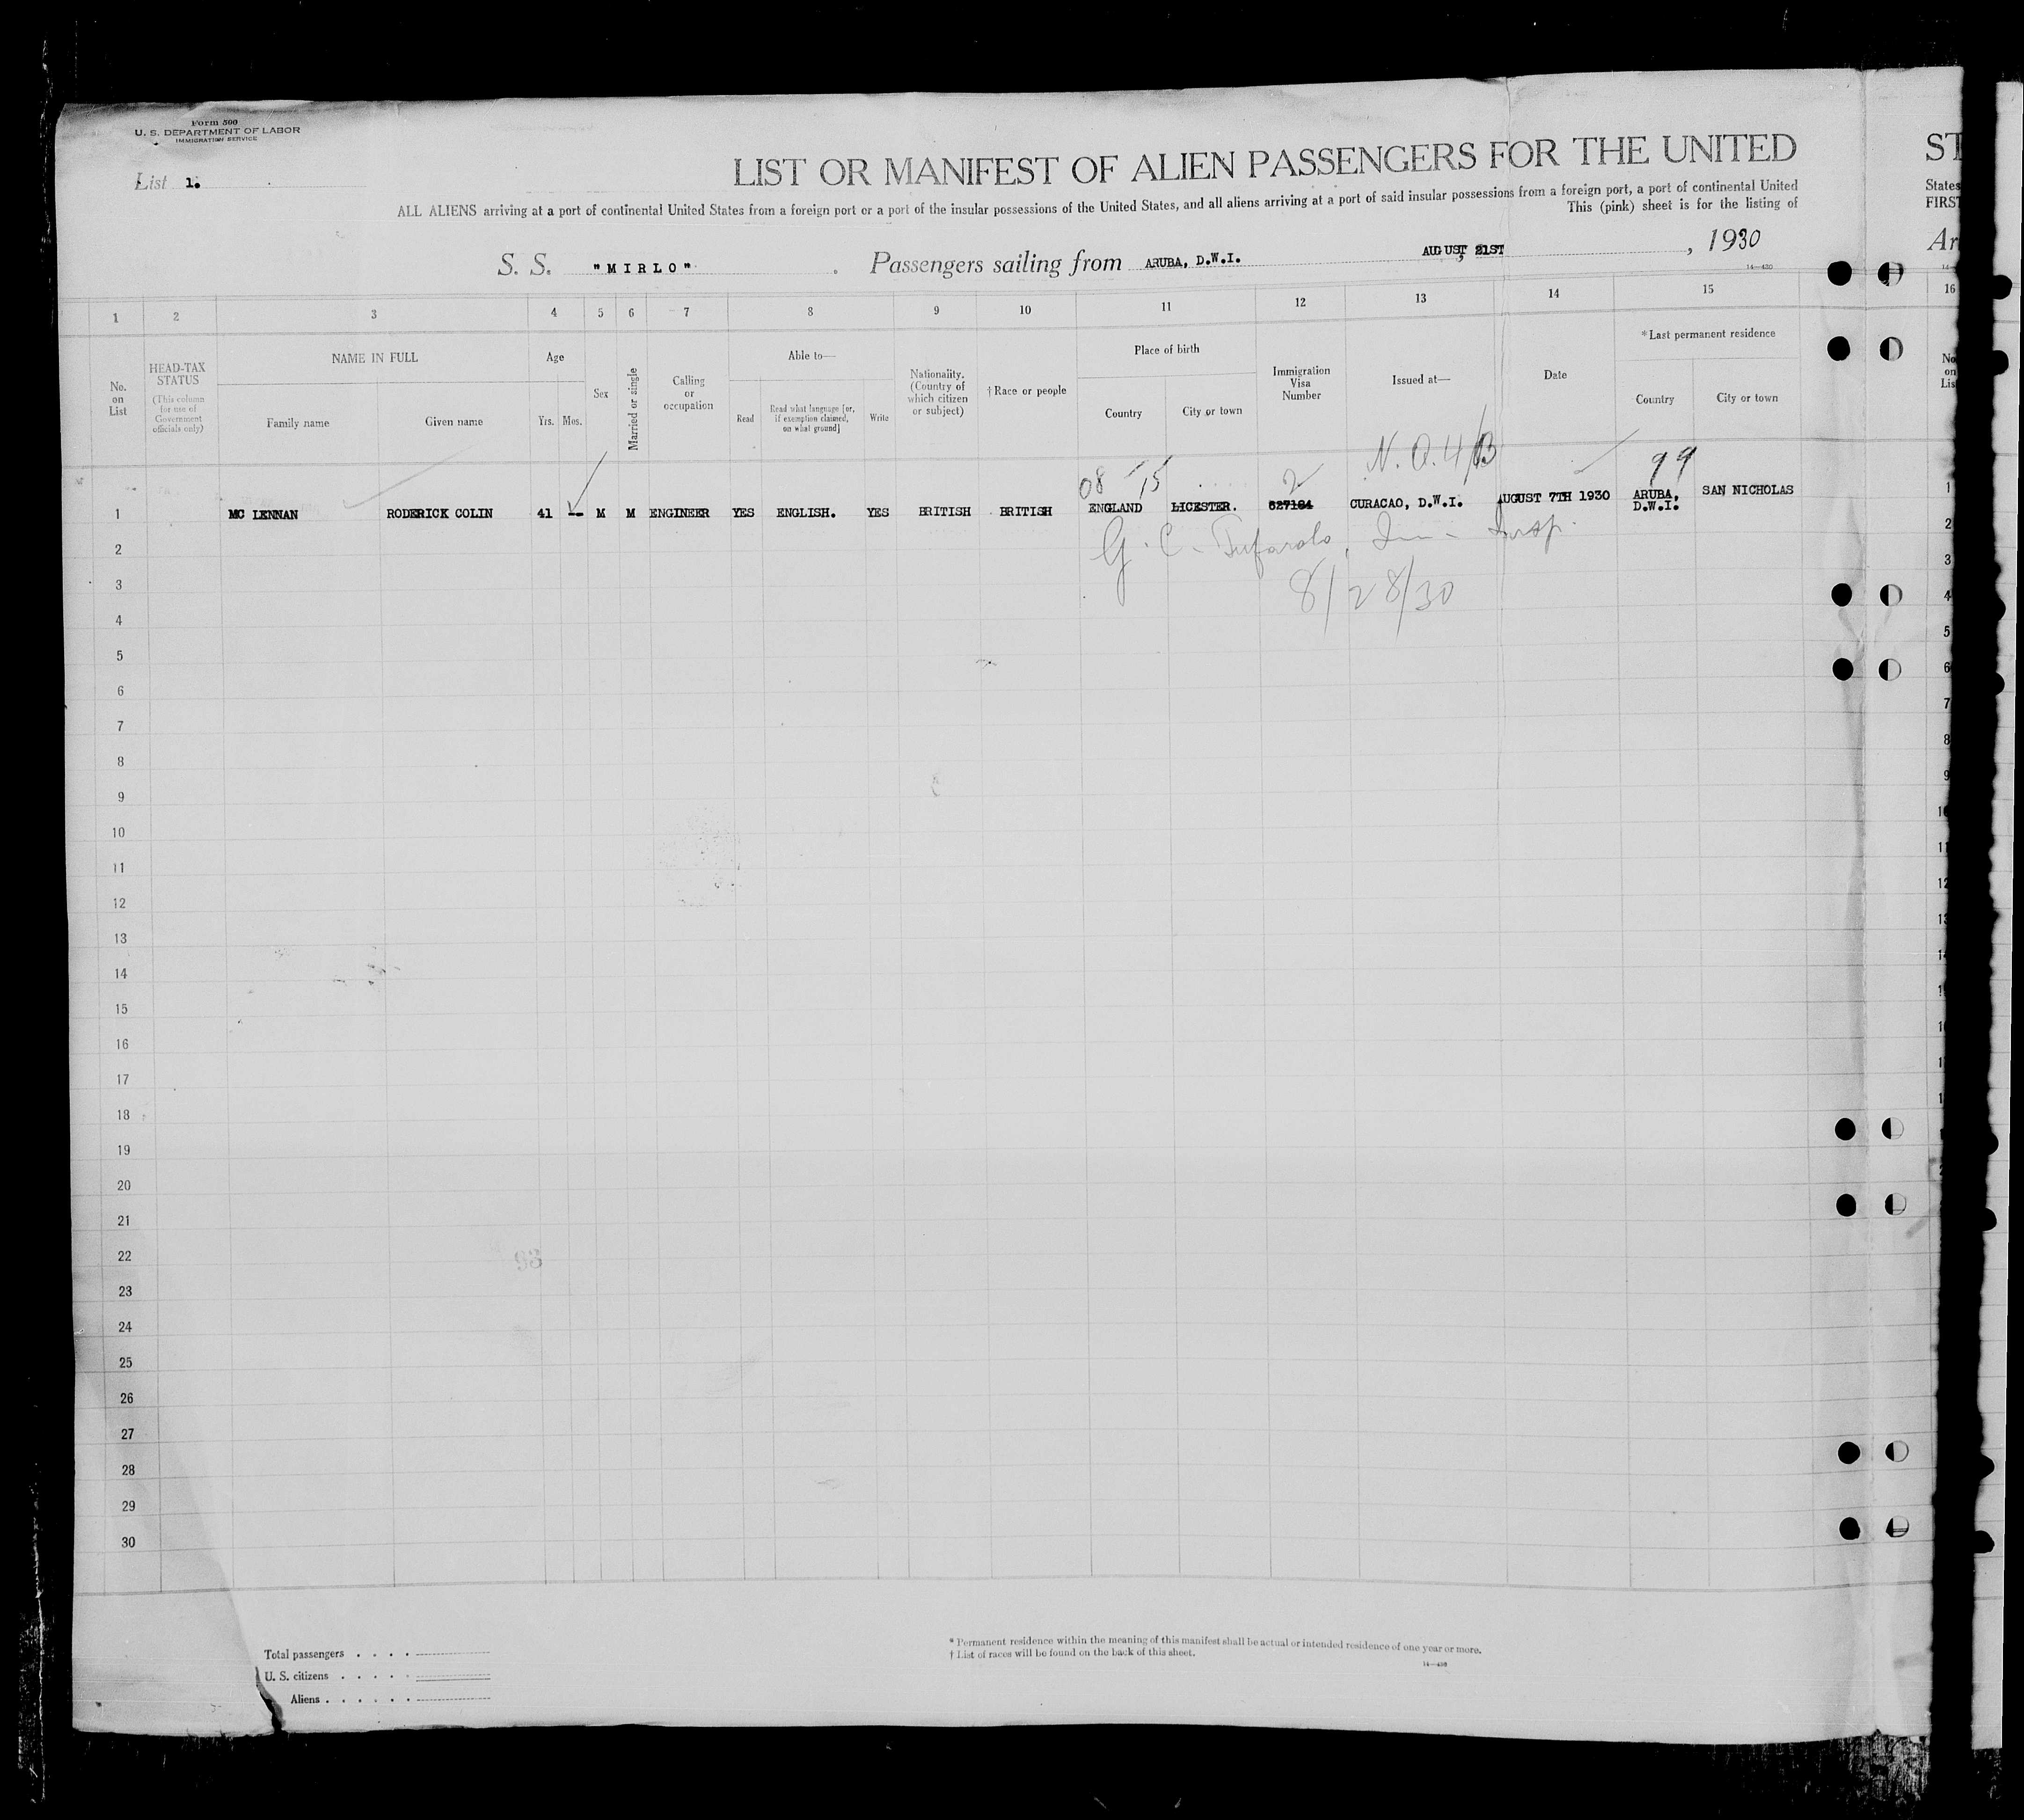 Form 500
U. S. DEPARTMENT OF LABOR
IMMIGRATION SERVICE
List 1.
LIST OR MANIFEST OF ALIEN PASSENGERS FOR THE UNITED
ALL ALIENS arriving at a port of continental United States from a foreign port or a port of the insular possessions of the United States, and all aliens arriving at a port of said insular possessions from a foreign port, a port of continental United
This (pink) sheet is for the listing of
S. S. "MIRLO" Passengers sailing from ARUBA, D.W.I. AUGUST, 21ST, 1930
14—430
ST
States
FIRST
Ar
1 2 3 4 5 6 7 8 9 10 11 12 13 14 15 16
No. on List
HEAD-TAX STATUS
(This column for use of Government officials only)
NAME IN FULL
Family name Given name
Age
Yrs. Mos.
Sex
Married or single
Calling or occupation
Able to—
Read
Read what language [or, if exemption claimed, on what ground]
Write
Nationality. (Country of which citizen or subject)
† Race or people
Place of birth
Country City or town
Immigration Visa Number
Issued at—
Date
* Last permanent residence
Country City or town
No on Lis
08 15 2 99
1 MC LENNAN RODERICK COLIN 41 -- M M ENGINEER YES ENGLISH. YES BRITISH BRITISH ENGLAND LICESTER. 627184 CURACAO, D.W.I. AUGUST 7TH 1930 ARUBA, D.W.I. SAN NICHOLAS
G. C. Insp.
8/28/30
2
3
4
5
6
7
8
9
10
11
12
13
14
15
16
17
18
19
20
21
22
23
24
25
26
27
28
29
30
93
Total passengers . . . .
U. S. citizens . . . . .
Aliens . . . . . .
* Permanent residence within the meaning of this manifest shall be actual or intended residence of one year or more.
† List of races will be found on the back of this sheet.
14—430